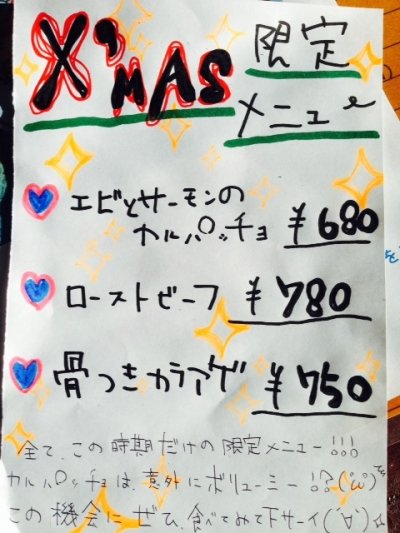 X'MAS 限定
メニュー
エビとサーモンの
カルパッチョ ¥680
ローストビーフ ¥780
骨つきカラアゲ ¥750
全て、この時期だけの限定メニュー!!!
カルパッチョは、意外にボリューミー!?('ω')
この機会にぜひ、食べてみて下サーイ(´∀`)☆